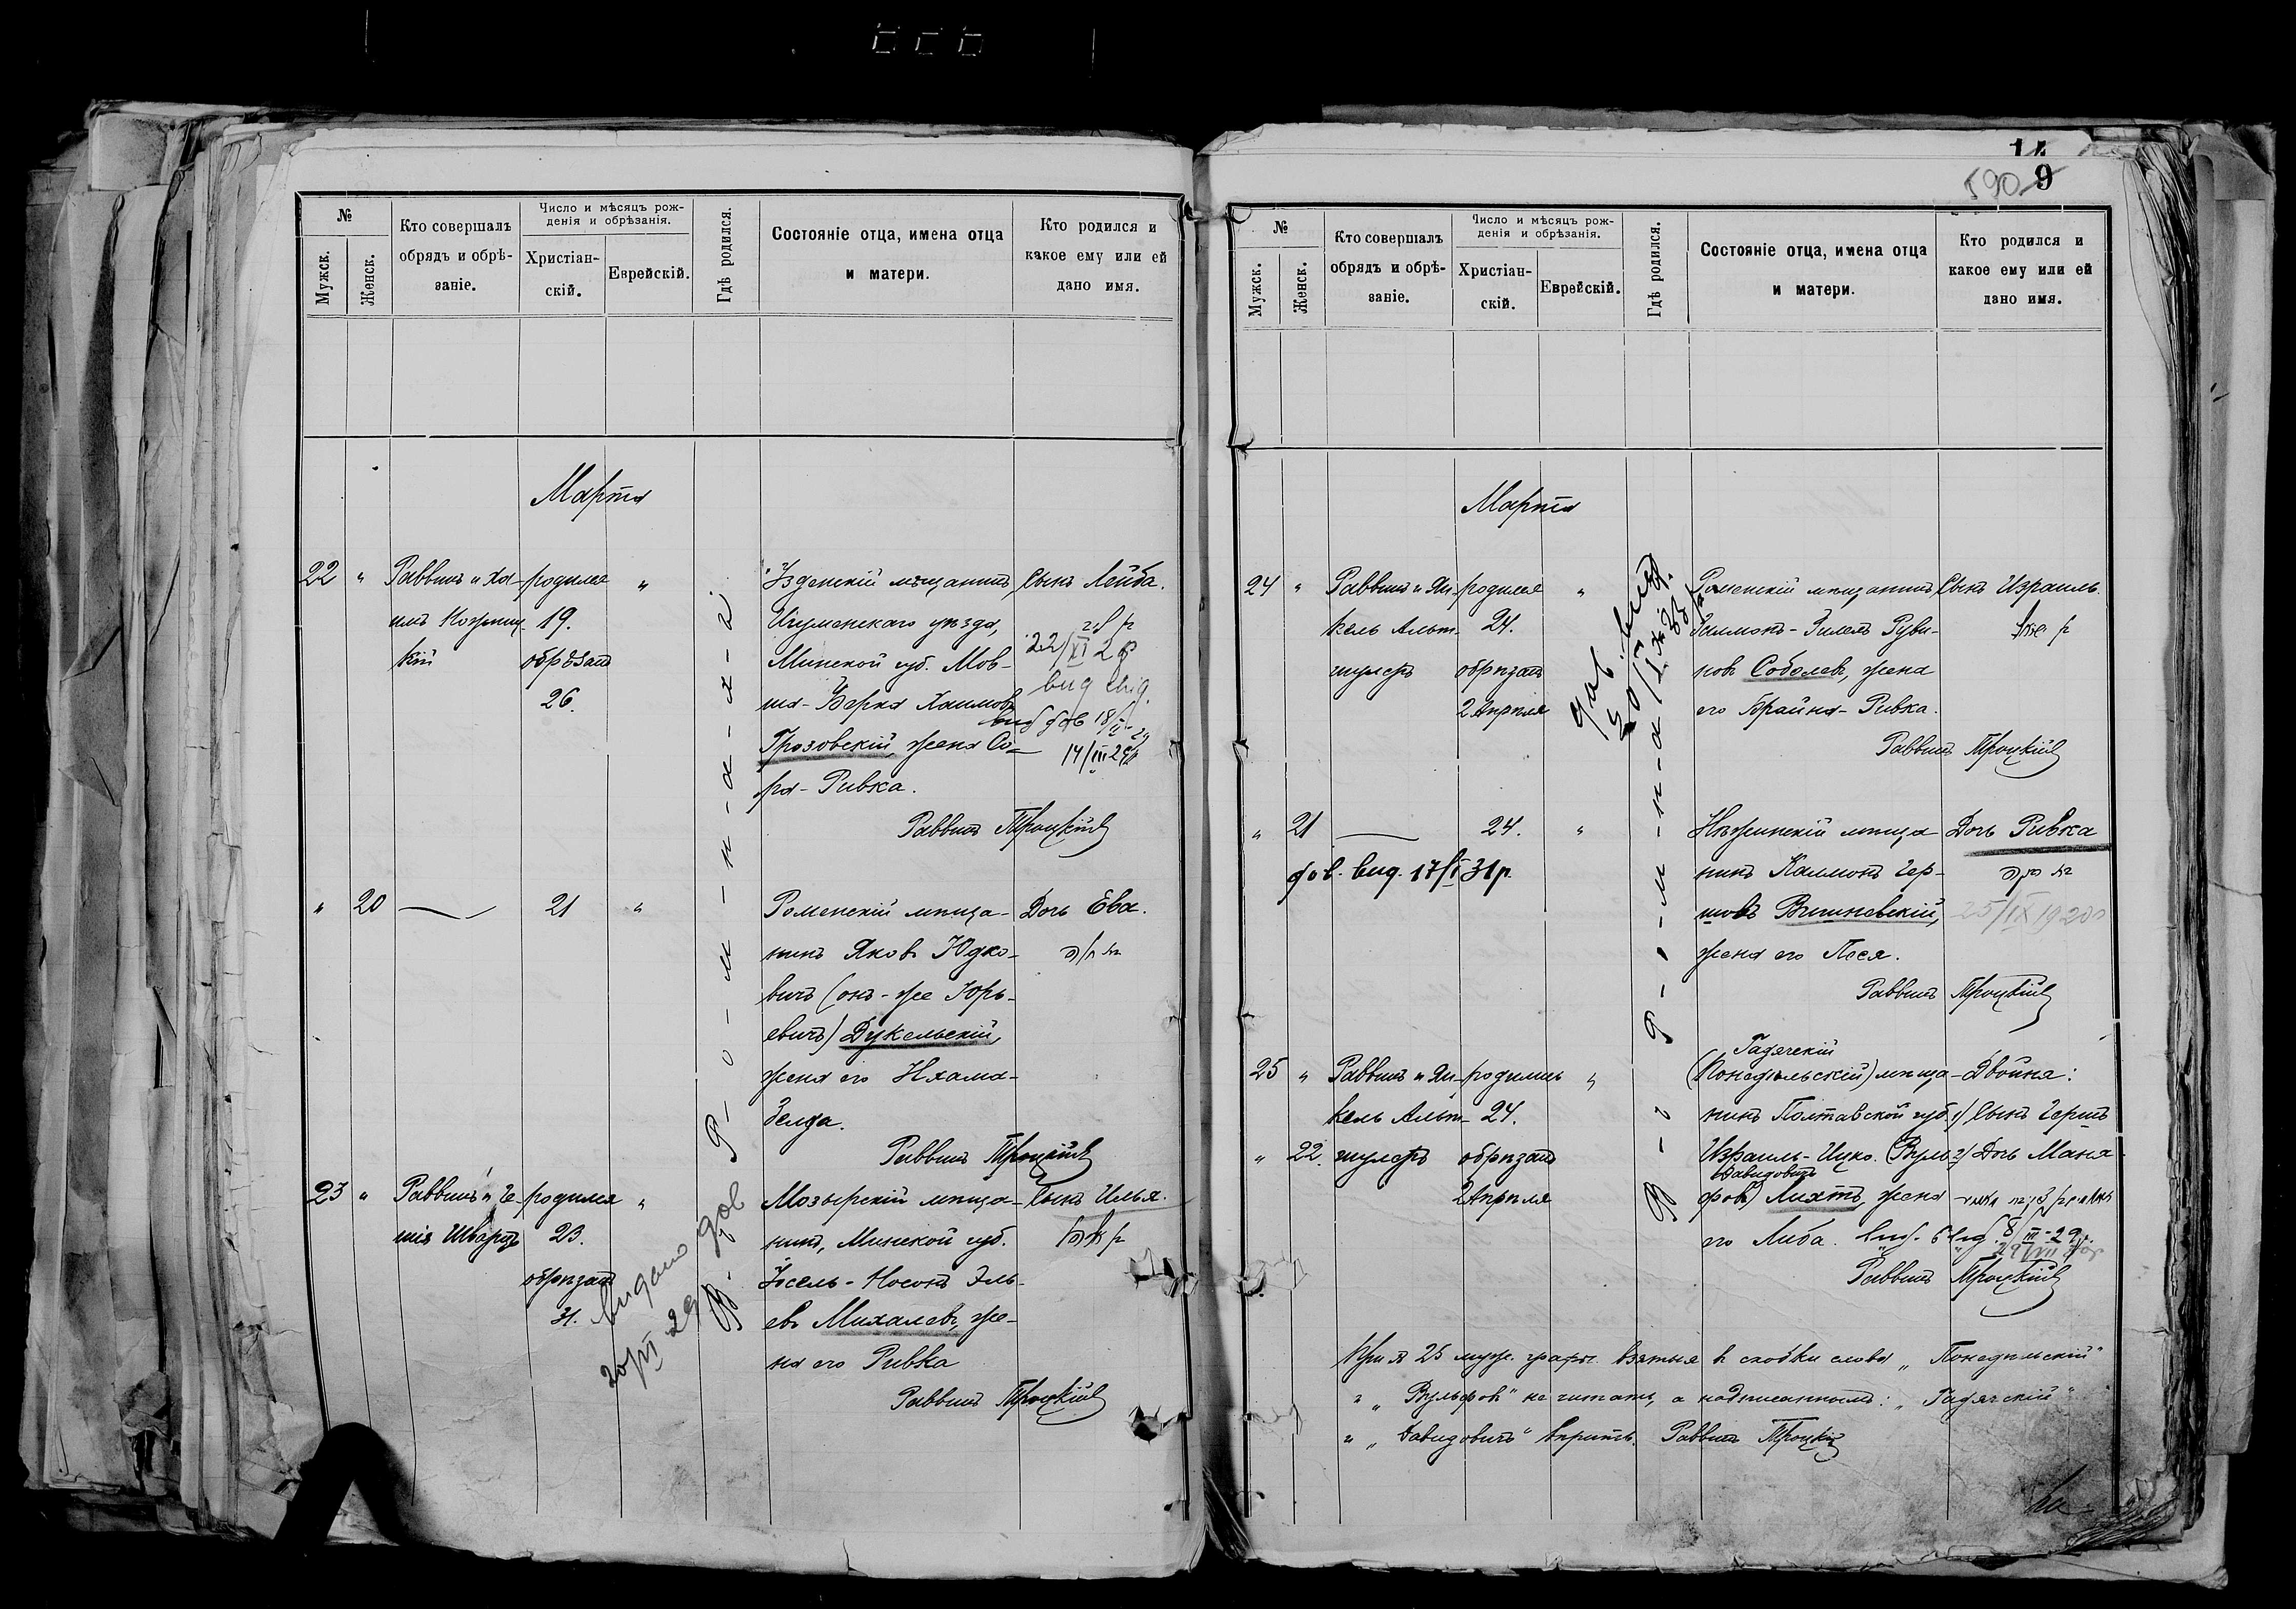 №
Мужск.
Женск.
Кто совершалъ
обрядъ и обрѣ-
заніе.
Число и мѣсяцъ рож-
денія и обрѣзанія.
Христіан-
скій.
Еврейскій.
Гдѣ родился.
Состояніе отца, имена отца
и матери.
Кто родился и
какое ему или ей
дано имя.
Марта
22 " Раввинъ и Ха-
имъ
кій
родился
19.
обрѣзанъ
26.
"
Узденскій мѣщанинъ
Игуменскаго уѣзда,
Минской губ. Мов-
ша-Берка Хаимовъ
Грозовскій, жена Со-
ра-Ривка.
Раввинъ Троцкій
Сынъ Лейба.
22/XI 28
14/III 29
" 20 — 21 "
Роменскій мѣща-
нинъ Яковъ Юдко-
вичъ (онъ-же Юрь-
евичъ) Дукельскій,
жена его Нхама-
Зелда.
Раввинъ Троцкій
Дочь Ева.
23 " Раввинъ и Ге-
шія Шварцъ
родился
23.
обрѣзанъ
31.
"
Мозырскій мѣща-
нинъ, Минской губ.
Іосель-Носонъ Эль-
евъ Михалевъ, же-
на его Ривка
Раввинъ Троцкій
Сынъ Илья.
видано дов
В г. Р-о-м-н-а-х-ъ
14
9
590
№
Мужск.
Женск.
Кто совершалъ
обрядъ и обрѣ-
заніе.
Число и мѣсяцъ рож-
денія и обрѣзанія.
Христіан-
скій.
Еврейскій.
Гдѣ родился.
Состояніе отца, имена отца
и матери.
Кто родился и
какое ему или ей
дано имя.
Марта
24 " Раввинъ и Ян-
кель Альт-
шулеръ
родился
24.
обрѣзанъ
2 Апрѣля
"
Роменскій мѣщанинъ
Залмонъ-Гилель Руви-
новъ Соболевъ, жена
его Брайна-Ривка.
Раввинъ Троцкій
Сынъ Израиль.
" 21 — 24. "
дов. вид. 17/V 31р.
Нѣжинскій мѣща-
нинъ Калмонъ Гер-
шовъ Вишневскій,
жена его Песя.
Раввинъ Троцкій
Дочь Ривка
25/IX 1920
25 " Раввинъ и Ян-
кель Альт-
" 22. шулеръ
родились
24.
обрѣзанъ
2 Апрѣля
"
Гадячскій
(Понедѣльскій) мѣща-
нинъ Полтавской губ.
Израиль-Ицко (Вуль-
Давидовичъ
фовъ) Лихтъ, жена
его Либа.
Раввинъ Троцкій
Двойня:
1) Сынъ Гершъ
2) Дочь Маня
8/III-29р.
При № 25 муж. графы взятыя въ скобки слова „Понедѣльскій"
" „Вульфовъ" не читать, а надписаннымъ: „Гадячскій"
и „Давидовичъ" вѣрить. Раввинъ Троцкій